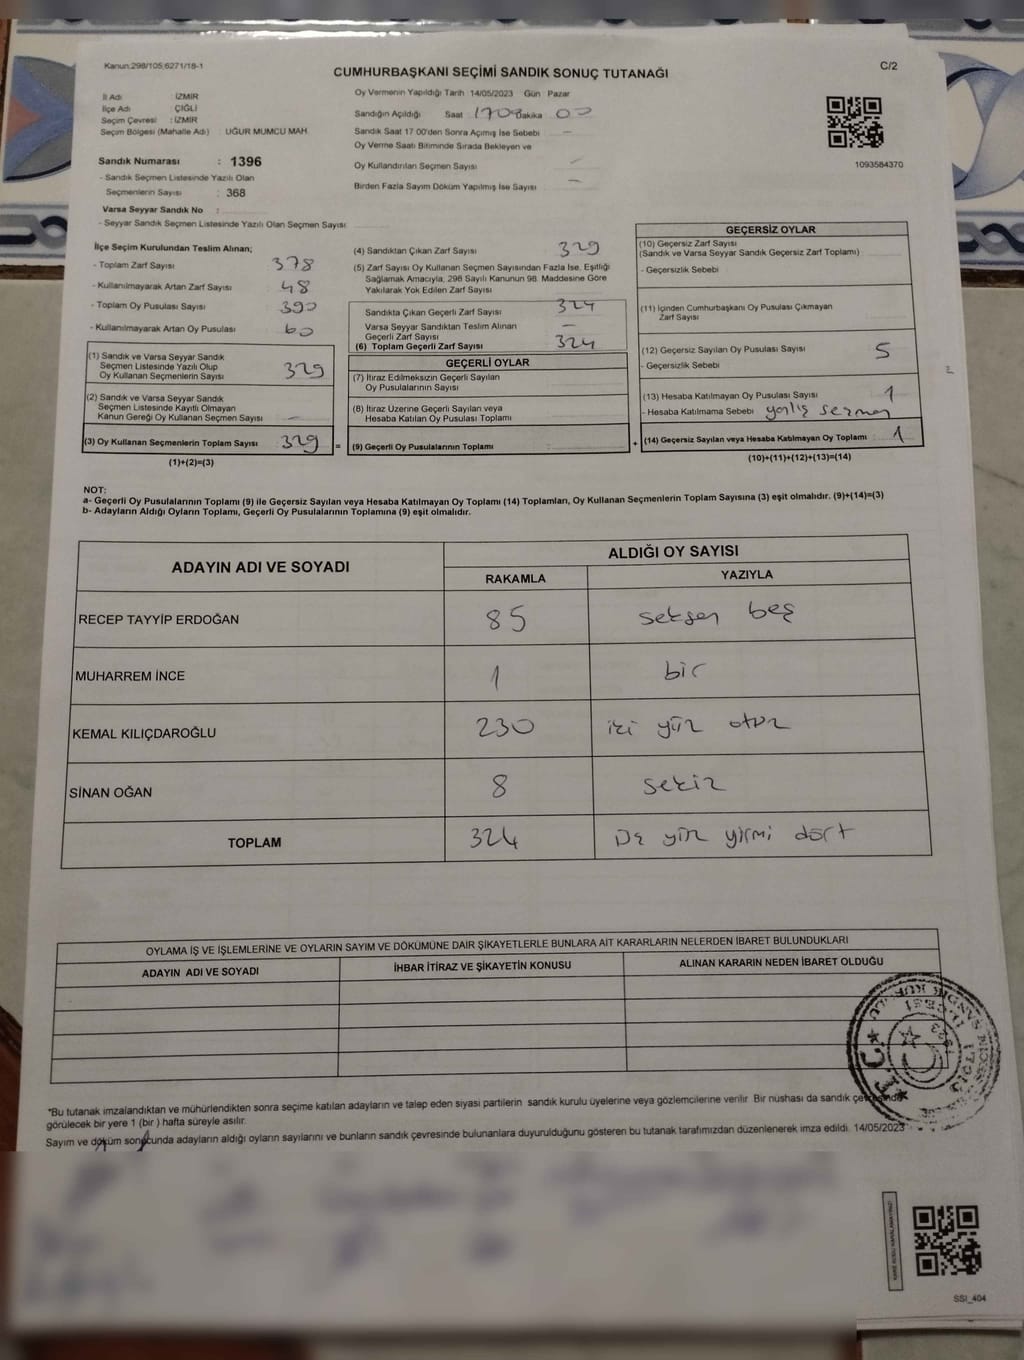 Kanun:298/105,6271/18-1
CUMHURBAŞKANI SEÇİMİ SANDIK SONUÇ TUTANAĞI
C/2
İl Adı : İZMİR
İlçe Adı : ÇİĞLİ
Seçim Çevresi : İZMİR
Seçim Bölgesi (Mahalle Adı) : UĞUR MUMCU MAH.
Oy Vermenin Yapıldığı Tarih 14/05/2023 Gün Pazar
Sandığın Açıldığı Saat 1700 Dakika 00
Sandık Saat 17 00'den Sonra Açımış İse Sebebi —
Oy Verme Saati Bitiminde Sırada Bekleyen ve
Oy Kullandırılan Seçmen Sayısı —
Birden Fazla Sayım Döküm Yapılmış İse Sayısı —
1093584370
Sandık Numarası : 1396
- Sandık Seçmen Listesinde Yazılı Olan
Seçmenlerin Sayısı : 368
Varsa Seyyar Sandık No :
- Seyyar Sandık Seçmen Listesinde Yazılı Olan Seçmen Sayısı
İlçe Seçim Kurulundan Teslim Alınan;
- Toplam Zarf Sayısı 378
- Kullanılmayarak Artan Zarf Sayısı 48
- Toplam Oy Pusulası Sayısı 390
- Kullanılmayarak Artan Oy Pusulası 60
(1) Sandık ve Varsa Seyyar Sandık
Seçmen Listesinde Yazılı Olup
Oy Kullanan Seçmenlerin Sayısı 329
(2) Sandık ve Varsa Seyyar Sandık
Seçmen Listesinde Kayıtlı Olmayan
Kanun Gereği Oy Kullanan Seçmen Sayısı —
(3) Oy Kullanan Seçmenlerin Toplam Sayısı 329 =
(1)+(2)=(3)
(4) Sandıktan Çıkan Zarf Sayısı 329
(5) Zarf Sayısı Oy Kullanan Seçmen Sayısından Fazla İse, Eşitliği
Sağlamak Amacıyla, 298 Sayılı Kanunun 98. Maddesine Göre
Yakılarak Yok Edilen Zarf Sayısı
Sandıkta Çıkan Geçerli Zarf Sayısı 324
Varsa Seyyar Sandıktan Teslim Alınan
Geçerli Zarf Sayısı —
(6) Toplam Geçerli Zarf Sayısı 324
GEÇERLİ OYLAR
(7) İtiraz Edilmeksizin Geçerli Sayılan
Oy Pusulalarının Sayısı
(8) İtiraz Üzerine Geçerli Sayılan veya
Hesaba Katılan Oy Pusulaları Toplamı
(9) Geçerli Oy Pusulalarının Toplamı +
GEÇERSİZ OYLAR
(10) Geçersiz Zarf Sayısı
(Sandık ve Varsa Seyyar Sandık Geçersiz Zarf Toplamı)
- Geçersizlik Sebebi
(11) İçinden Cumhurbaşkanı Oy Pusulası Çıkmayan
Zarf Sayısı
(12) Geçersiz Sayılan Oy Pusulası Sayısı 5
- Geçersizlik Sebebi
(13) Hesaba Katılmayan Oy Pusulası Sayısı 1
- Hesaba Katılmama Sebebi yanlış seçmen
(14) Geçersiz Sayılan veya Hesaba Katılmayan Oy Toplamı 1
(10)+(11)+(12)+(13)=(14)
NOT:
a- Geçerli Oy Pusulalarının Toplamı (9) ile Geçersiz Sayılan veya Hesaba Katılmayan Oy Toplamı (14) Toplamları, Oy Kullanan Seçmenlerin Toplam Sayısına (3) eşit olmalıdır. (9)+(14)=(3)
b- Adayların Aldığı Oyların Toplamı, Geçerli Oy Pusulalarının Toplamına (9) eşit olmalıdır.
ADAYIN ADI VE SOYADI
ALDIĞI OY SAYISI
RAKAMLA YAZIYLA
RECEP TAYYİP ERDOĞAN 85 seksen beş
MUHARREM İNCE 1 bir
KEMAL KILIÇDAROĞLU 230 iki yüz otuz
SİNAN OĞAN 8 sekiz
TOPLAM 324 Üç yüz yirmi dört
OYLAMA İŞ VE İŞLEMLERİNE VE OYLARIN SAYIM VE DÖKÜMÜNE DAİR ŞİKAYETLERLE BUNLARA AİT KARARLARIN NELERDEN İBARET BULUNDUKLARI
ADAYIN ADI VE SOYADI
İHBAR İTİRAZ VE ŞİKAYETİN KONUSU
ALINAN KARARIN NEDEN İBARET OLDUĞU
*Bu tutanak imzalandıktan ve mühürlendikten sonra seçime katılan adayların ve talep eden siyasi partilerin sandık kurulu üyelerine veya gözlemcilerine verilir. Bir nüshası da sandık çevresinde
görülecek bir yere 1 (bir ) hafta süreyle asılır.
Sayım ve döküm sonucunda adayların aldığı oyların sayılarını ve bunların sandık çevresinde bulunanlara duyurulduğunu gösteren bu tutanak tarafımızdan düzenlenerek imza edildi. 14/05/2023
T.C.
SSI_404